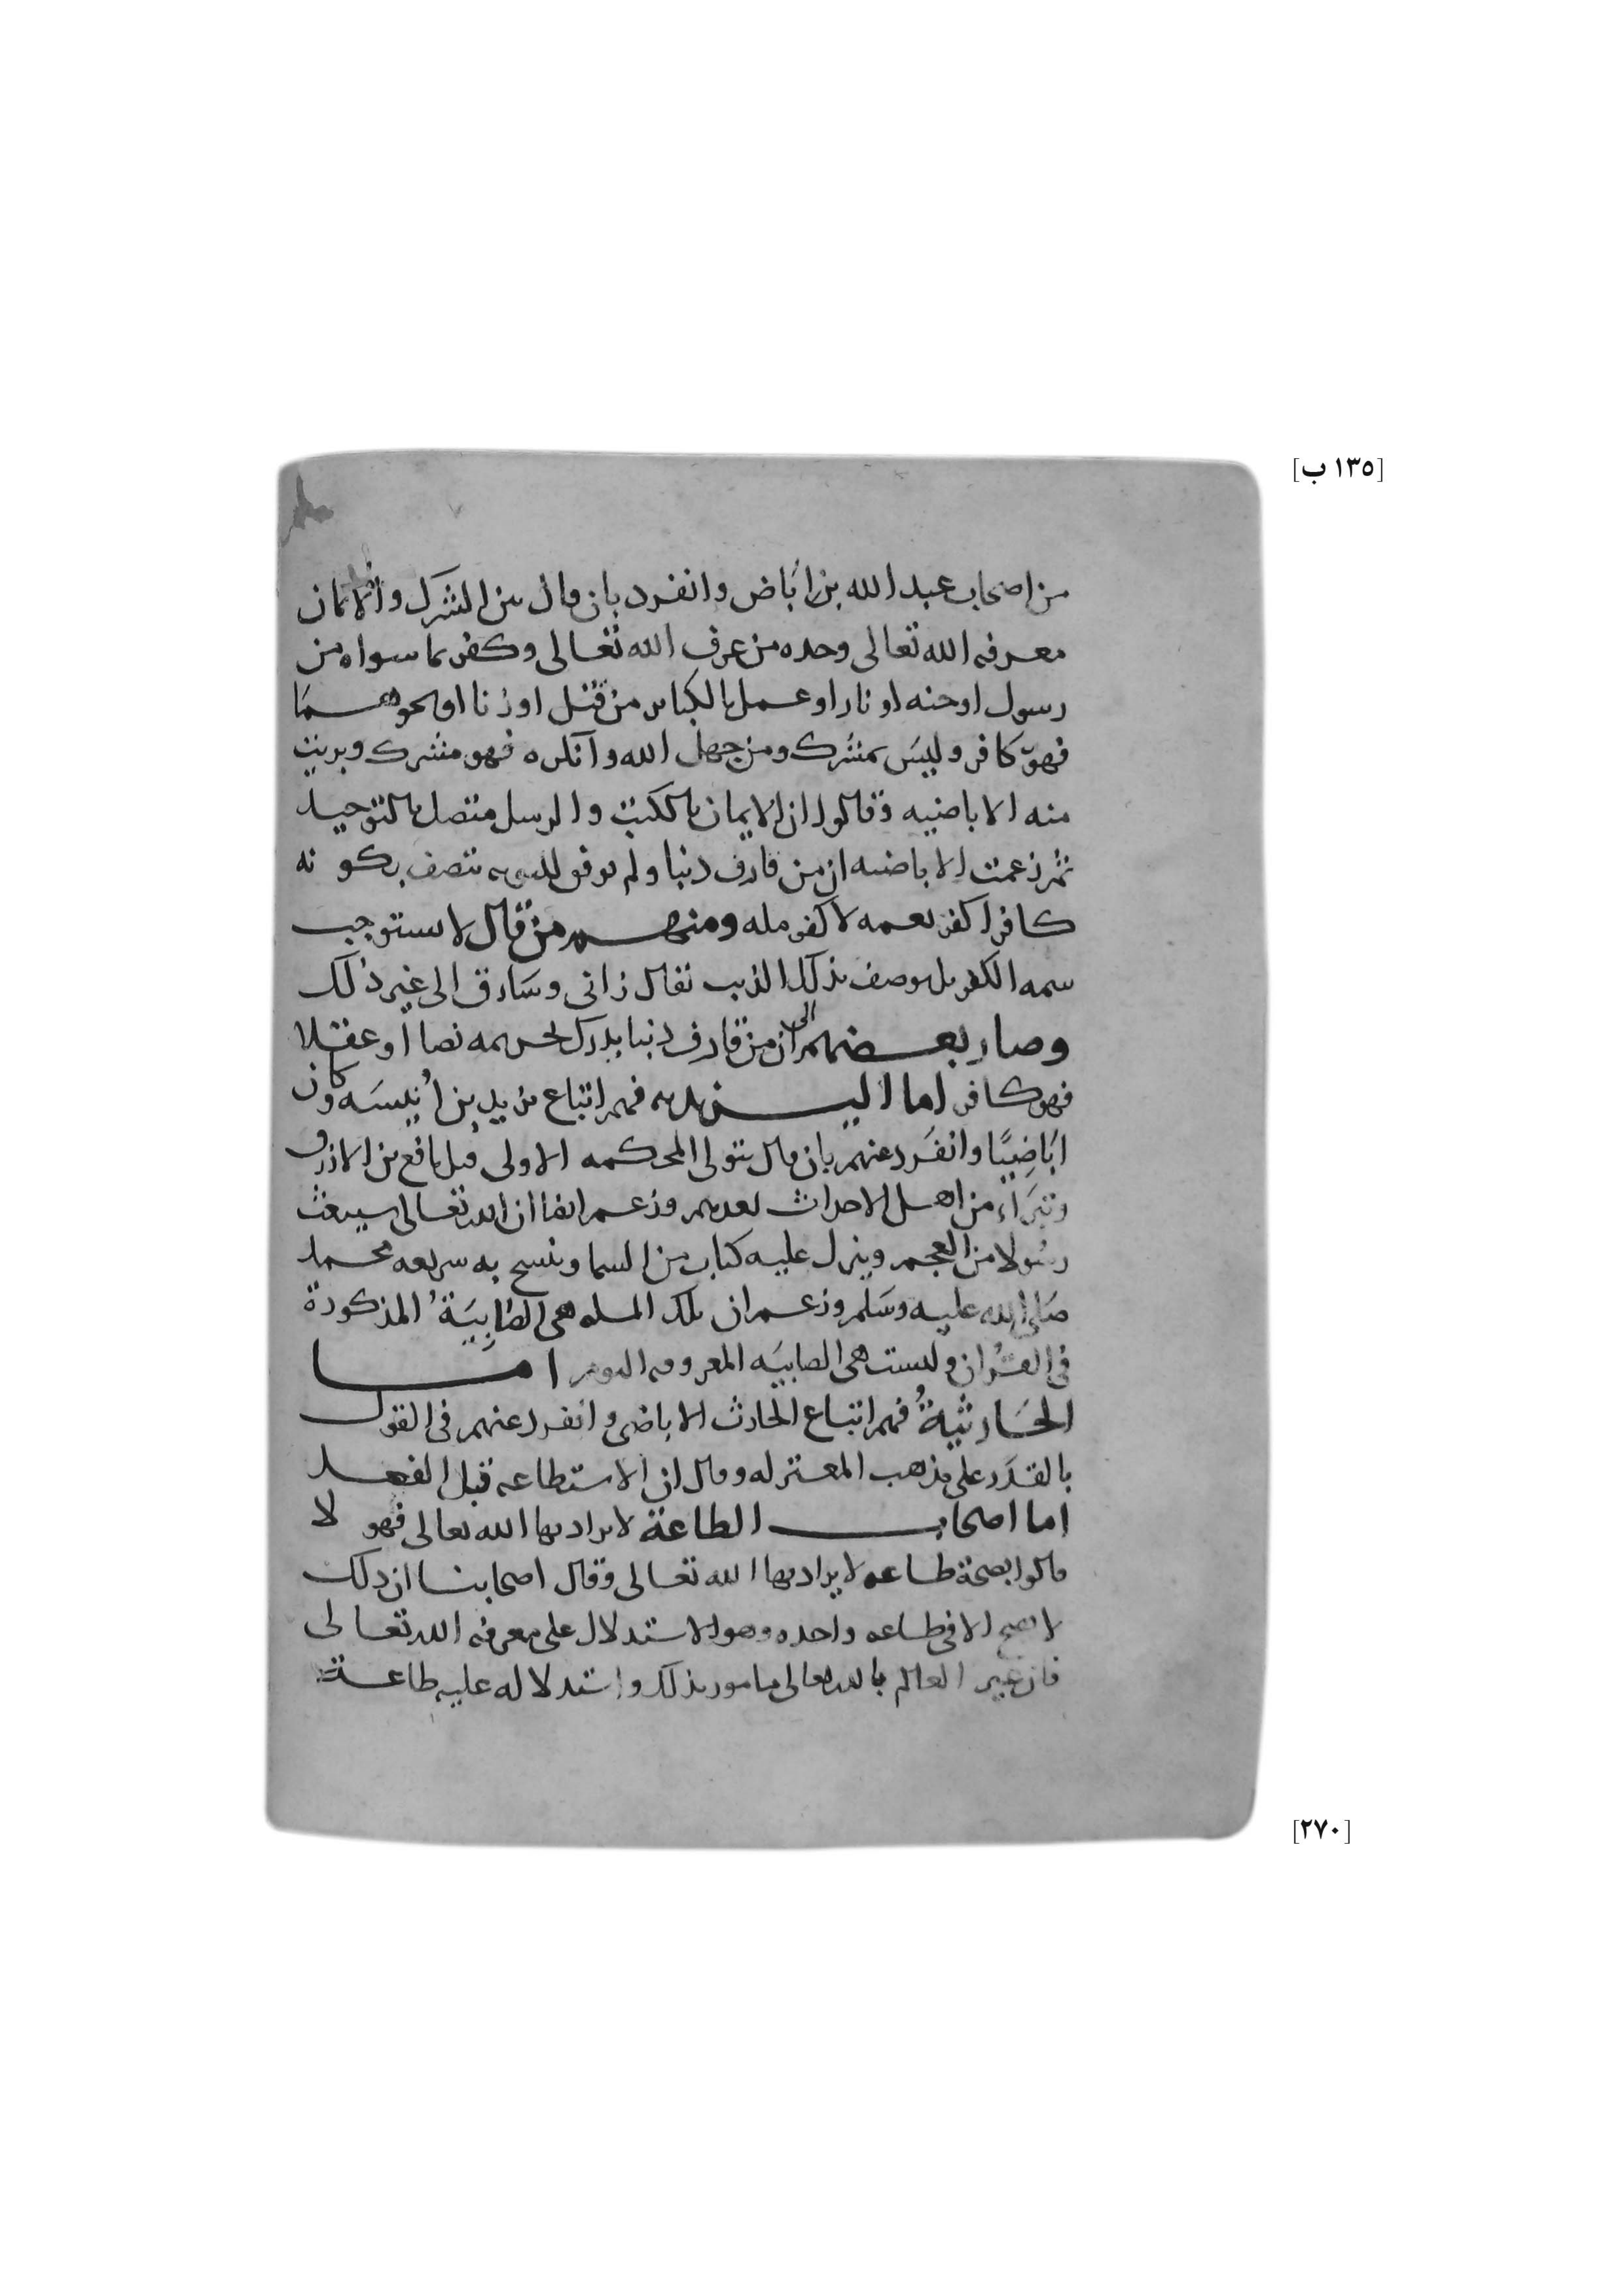 [١٣٥ ب]
من اصحاب عبد الله بن اَباض وانفرد بان قال بين الشرك والايمان
معرفه الله تعالى وحده من عرف الله تعالى وكفر بما سواه من
رسول او جنه او نار او عمل بالكباير من قتل او زنا او نحوهما
فهو كافر وليس بمشرك ومن جهل الله وانكره فهو مشرك وبريت
منه الاباضيه وقالوا ان الايمان بالكتب والرسل متصل بالتوحيد
ثم زعمت الاباضيه ان من قارف ذنبا ولم يوفق للتوبه يتصف بكونه
كافرا كفر نعمه لا كفر مله ومنهم من قال لا يستوجب
سمه الكفر بل يوصف بذلك الذنب يقال زانى وسارق الى غير ذلك
وصار بعضهم الى ان من قارف ذنبا يدرك تحريمه نصا او عقلا
فهو كافر اما اليزيديه فهم اتباع يزيد بن اُنيسَه وكان
اَبَاضِيًّا وانفَرد عنهم بان قال بتولى المحكمه الاولى قبل نافع بن الازرق
وتبرَاء من اهل الاحداث بعدهم وزعم ايضا ان الله تعالى سيبعث
رسُولا من العجم وينزل عليه كتاب من السما وينسخ به شريعه محمد
صَلى الله عليه وسَلم وزعم ان تلك المله هى الصَّابِيَةُ المذكورة
فى القُران وليست هى الصابيَه المعروفه اليوم اما
الحَارثيةُ فهم اتباع الحارث الاباضى وانفرد عنهم فى القول
بالقدَر على مذهب المعتزله وقال ان الاستطاعه قبل الفعل
اما اصحاب الطاعة لا يراد بها الله تعالى فهولا
قالوا بصحة طاعه لا يراد بها الله تعالى وقال اصحابنا ان ذلك
لا يصح الا فى طاعه واحده وهو الاستدلال على معرفه الله تعالى
فان غير العالم بالله تعالى مامور بذلك واستدلاله عليه طاعة
[٢٧٠]